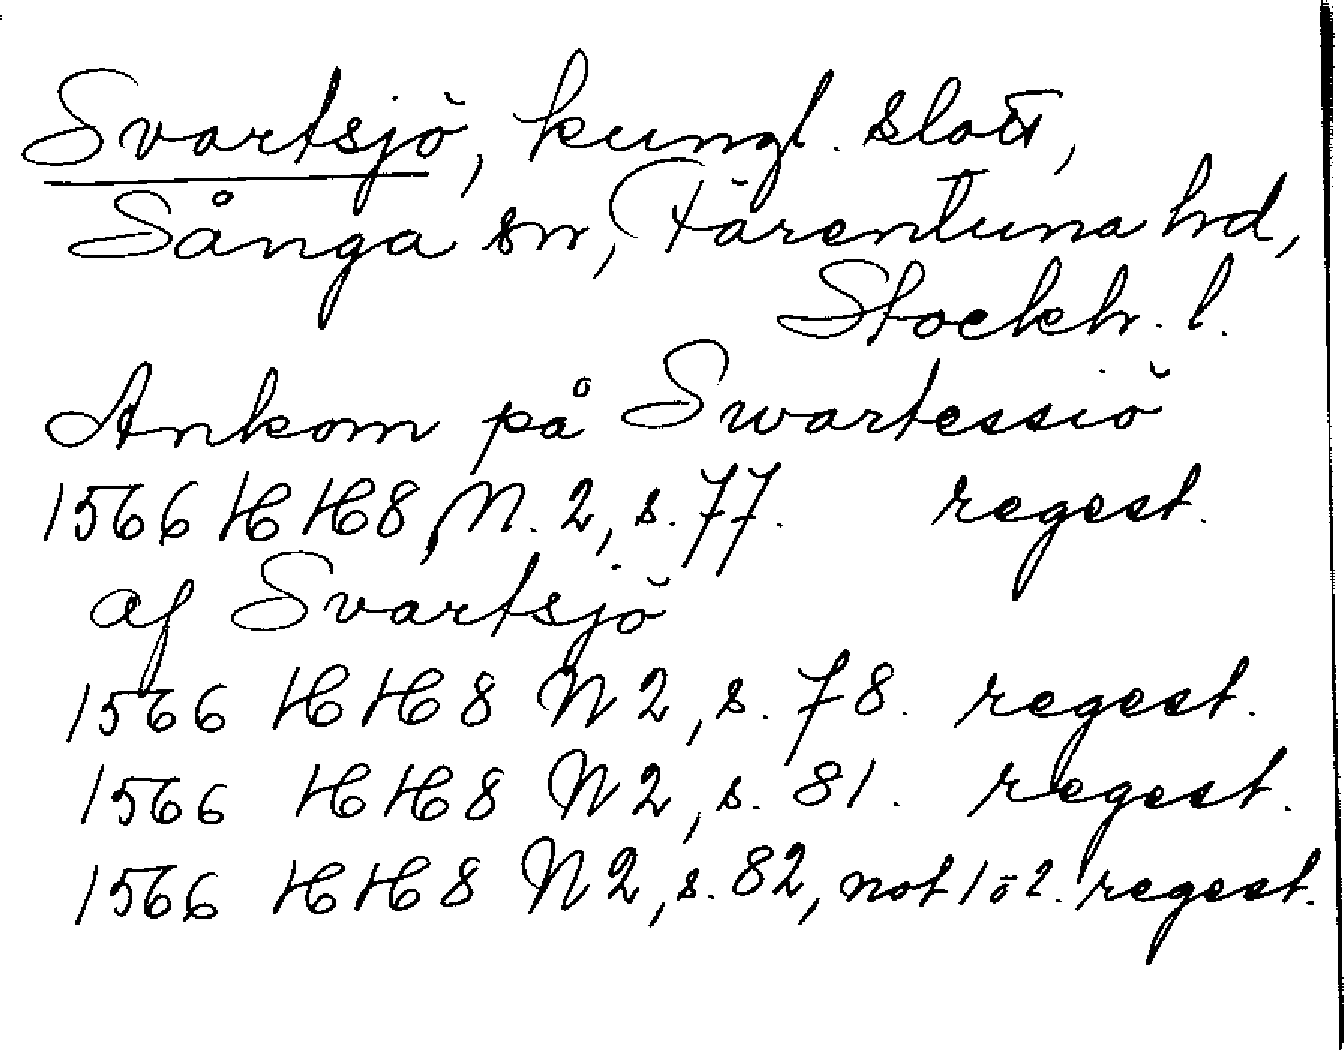 Svartsjö, kungl. slott,
Sånga sn, Färentuna hd,
Stockh. l.
Ankom på Swartessiö
1566 HH8, N. 2, s. 77. regest.
af Svartsjö
1566 HH8 N 2, s. 78. regest.
1566 HH8 N 2, s. 81. regest.
1566 HH8 N 2, s. 82, not 1 o 2. regest.